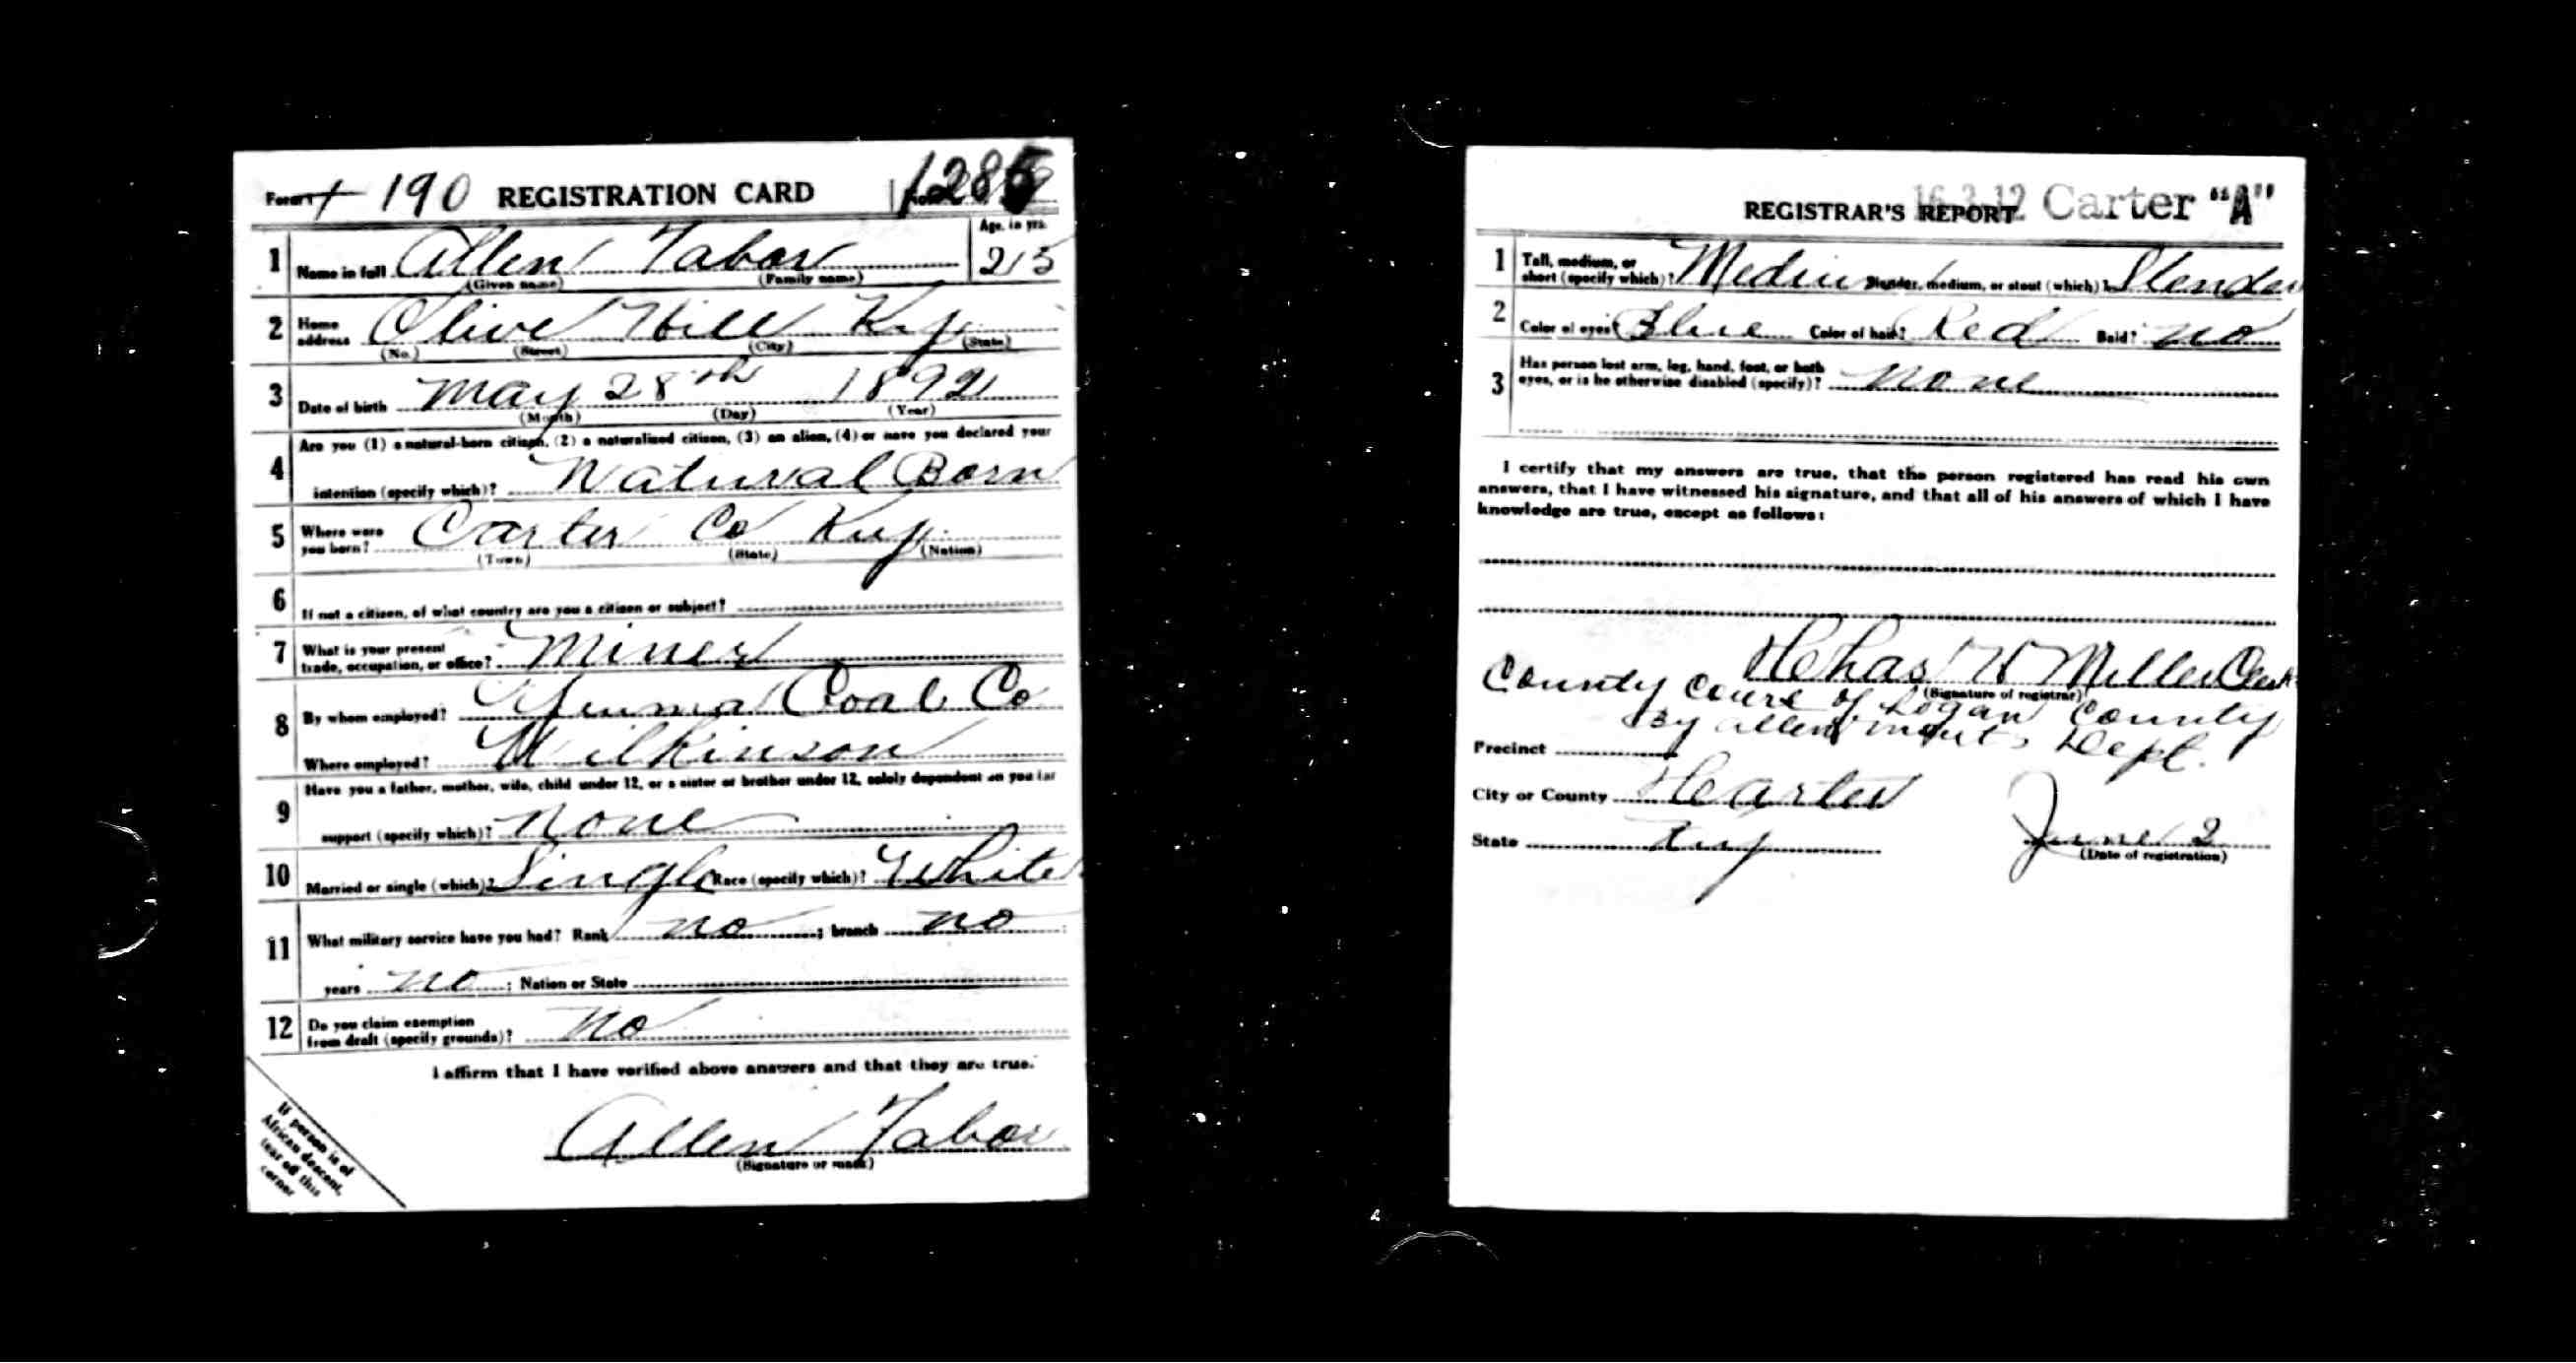 Form 1 190 REGISTRATION CARD No. 128
Age, in yrs.
1 Name in full Allen Tabor 25
(Given name) (Family name)
2 Home address Olive Hill Ky.
(No.) (Street) (City) (State)
3 Date of birth May 28th 1892
(Month) (Day) (Year)
4 Are you (1) a natural-born citizen, (2) a naturalized citizen, (3) an alien, (4) or have you declared your
intention (specify which)? Natural Born
5 Where were you born? Carter Co Ky.
(Town) (State) (Nation)
6 If not a citizen, of what country are you a citizen or subject?
7 What is your present trade, occupation, or office? Miner
8 By whom employed? Yuma Coal Co
Where employed? Wilkinson
9 Have you a father, mother, wife, child under 12, or a sister or brother under 12, solely dependent on you for
support (specify which)? None
10 Married or single (which)? Single Race (specify which)? White
11 What military service have you had? Rank no ; branch no ;
years no ; Nation or State
12 Do you claim exemption from draft (specify grounds)? No
I affirm that I have verified above answers and that they are true.
Allen Tabor
(Signature or mark)
If person is of
African descent,
tear off this
corner
16-3-12 Carter "A"
REGISTRAR'S REPORT
1 Tall, medium, or short (specify which)? Medium Slender, medium, or stout (which)? Slender
2 Color of eyes? Blue Color of hair? Red Bald? no
3 Has person lost arm, leg, hand, foot, or both
eyes, or is he otherwise disabled (specify)? none
I certify that my answers are true, that the person registered has read his own
answers, that I have witnessed his signature, and that all of his answers of which I have
knowledge are true, except as follows:
Chas W Miller Clerk
(Signature of registrar)
County Court of Logan County
By Allen Dept.
Precinct
City or County Carter
State Ky June 2
(Date of registration)